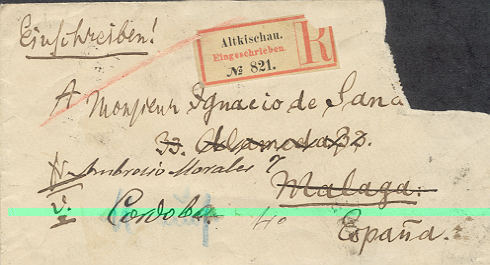 Einschreiben!
Altkischau.
Eingeschrieben.
R
№ 821.
A Monsieur Ignacio de Sana
33. Alameda 32.
Ambrosio Morales 7
Malaga.
Cordoba
España.